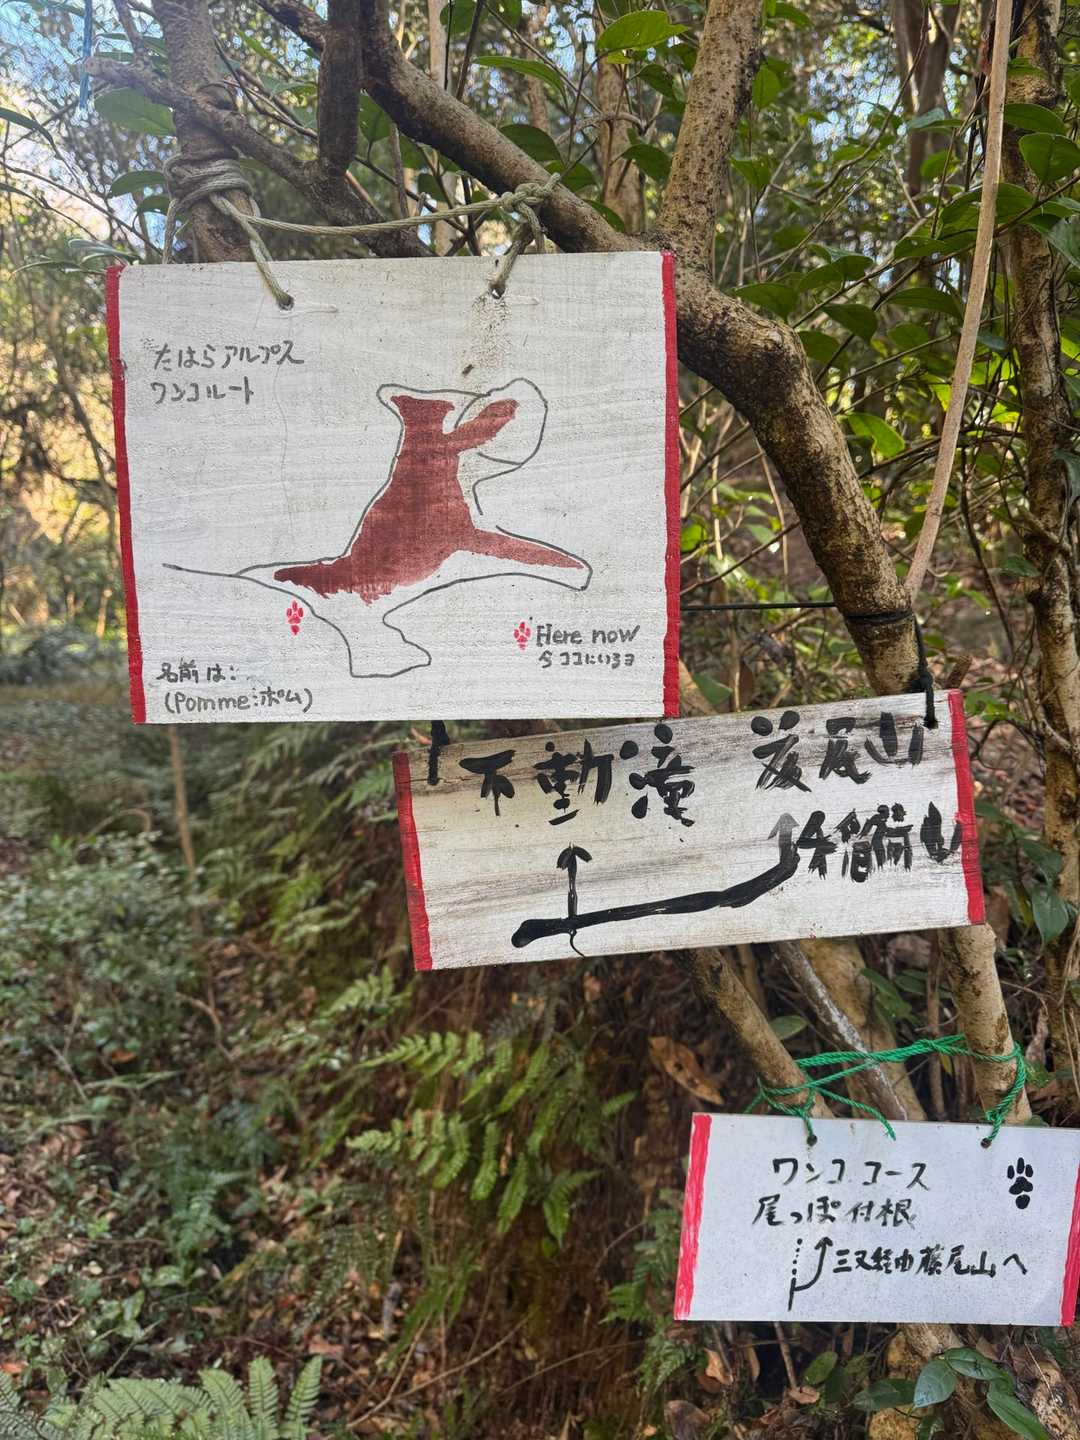 たはらアルプス
ワンコルート
Here now
今ココにいるヨ
名前は：
(Pomme：ポム)
不動滝 藤尾山
稲荷山
ワンコ コース
尾っぽ付根
三又経由藤尾山へ